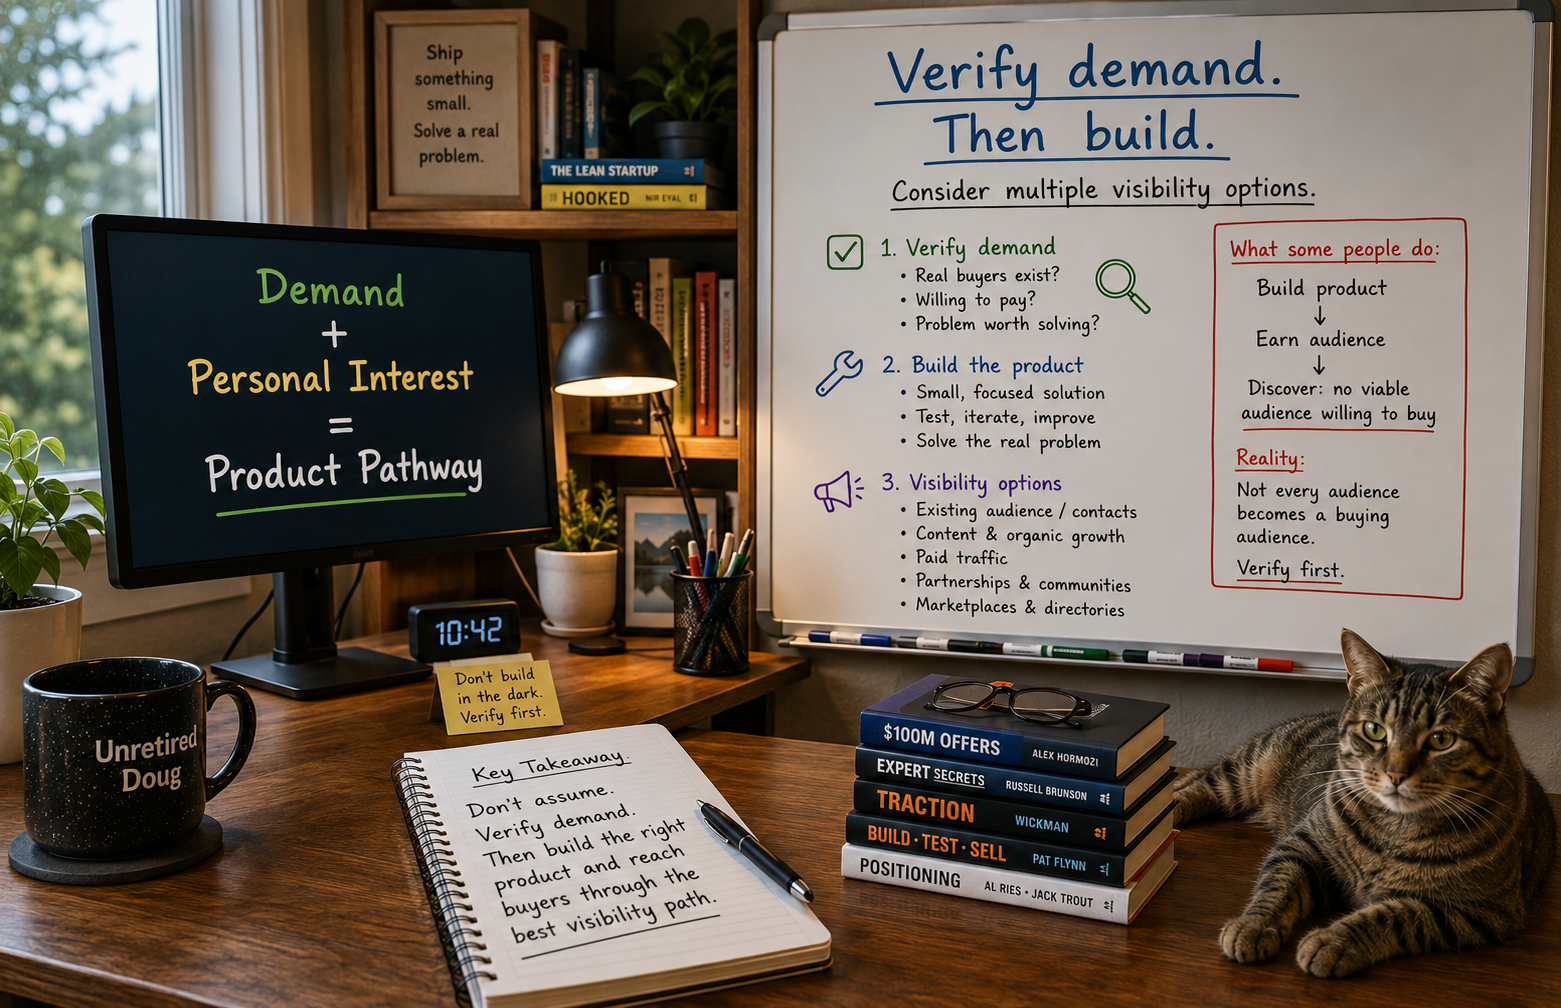 Ship
something
small.
Solve a real
problem.
THE LEAN STARTUP
HOOKED NIR EYAL
Demand
+
Personal Interest
=
Product Pathway
10:42
Don't build
in the dark.
Verify first.
Unretired
Doug
Key Takeaway:
Don't assume.
Verify demand.
Then build the right
product and reach
buyers through the
best visibility path.
Verify demand.
Then build.
Consider multiple visibility options.
1. Verify demand
• Real buyers exist?
• Willing to pay?
• Problem worth solving?
2. Build the product
• Small, focused solution
• Test, iterate, improve
• Solve the real problem
3. Visibility options
• Existing audience / contacts
• Content & organic growth
• Paid traffic
• Partnerships & communities
• Marketplaces & directories
What some people do:
Build product
↓
Earn audience
↓
Discover: no viable
audience willing to buy
Reality:
Not every audience
becomes a buying
audience.
Verify first.
$100M OFFERS ALEX HORMOZI
EXPERT SECRETS RUSSELL BRUNSON
TRACTION WICKMAN
BUILD · TEST · SELL PAT FLYNN
POSITIONING AL RIES · JACK TROUT